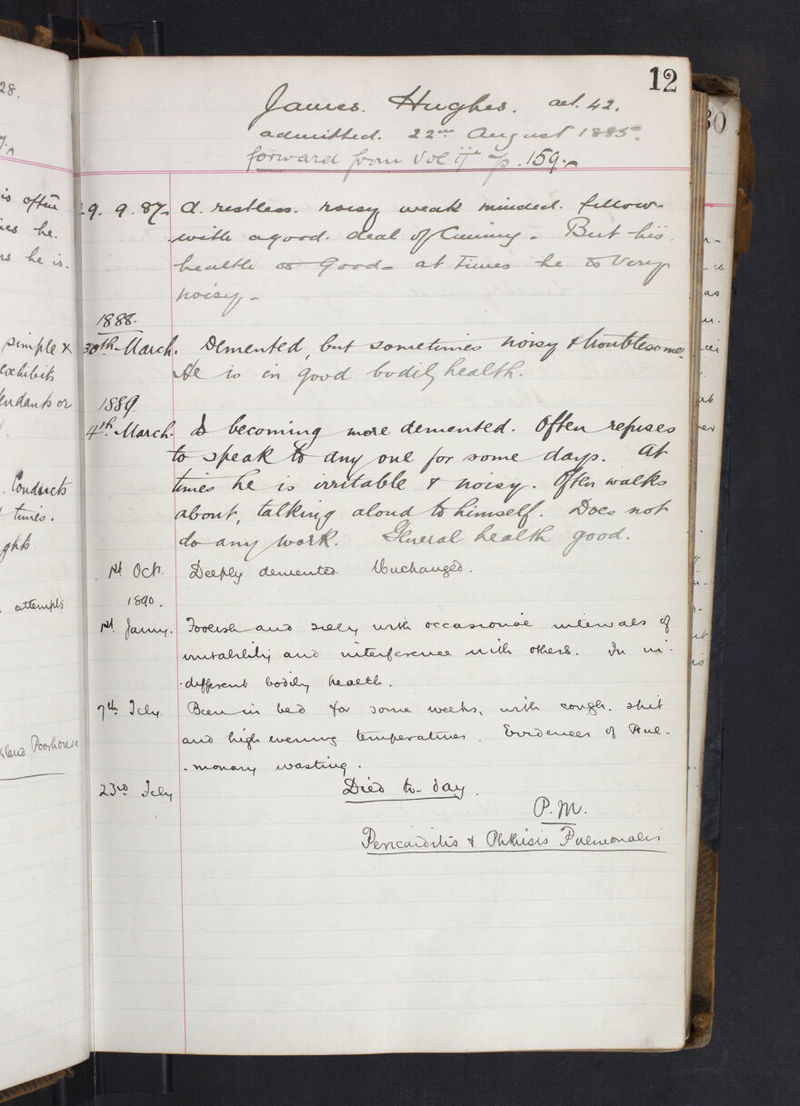 12
James. Hughes. aet. 42.
admitted. 22nd August 1885.
forward from Vol II p. 159.
29. 9. 87. A. restless. noisy weak minded. fellow
with a good. deal of Cunning - But his.
health is Good - at times he is Very
noisy -
1888.
30th March. Demented, but sometimes noisy & troublesome.
He is in good bodily health.
1889
4th March. Is becoming more demented. Often refuses
to speak to any one for some days. At
times he is irritable & noisy. Often walks
about, talking aloud to himself. Does not
do any work. General health good.
1st Oct. Deeply demented. Unchanged.
1890.
1st Janny. Foolish and silly with occasional intervals of
irritability and interference with others. In in-
-different bodily health.
7th July. Been in bed for some weeks, with cough, spit
and high evening temperatures. Evidences of Pul-
-monary wasting.
23rd July Died to-day.
P.M.
Pericarditis & Phthisis Pulmonalis
28.
is often
he.
he is.
simple &
exhibits
or
. Conducts
times.
attempts
Poorhouse
30
is
as